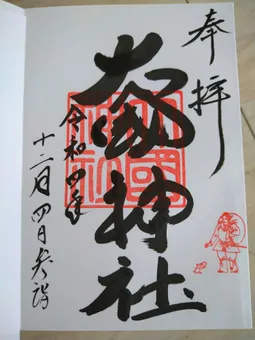 奉拝
大國神社
令和四年
十二月四日参詣